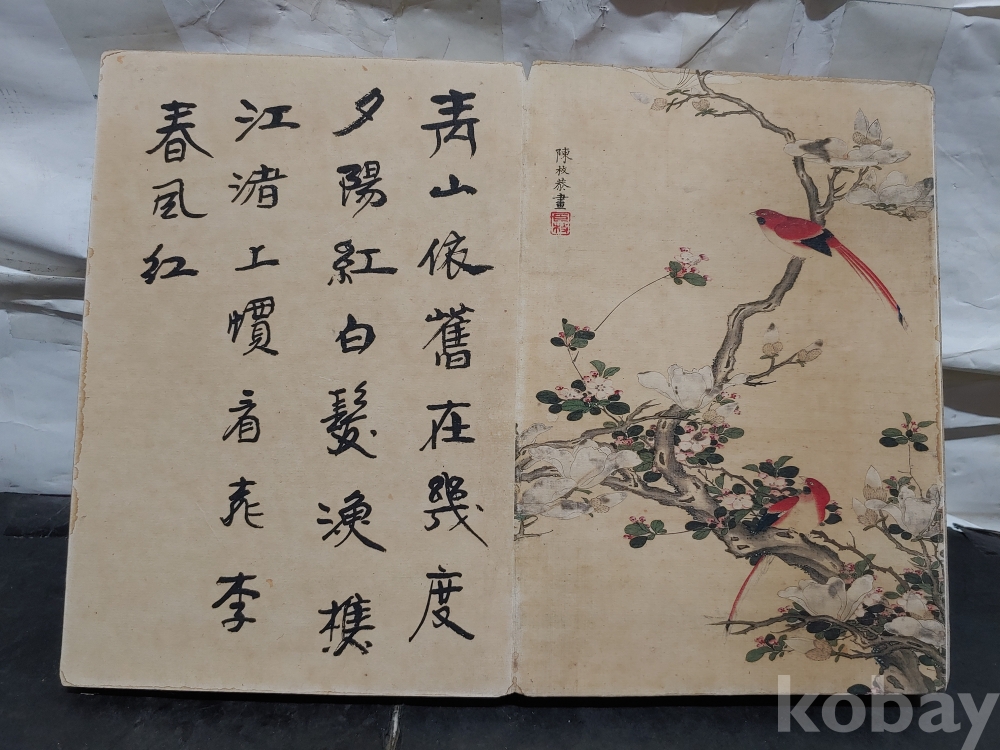 青山依舊在幾度
夕陽紅白髮漁樵
江渚上慣看李
春風紅
陳枚恭畫
臣枚
kobay